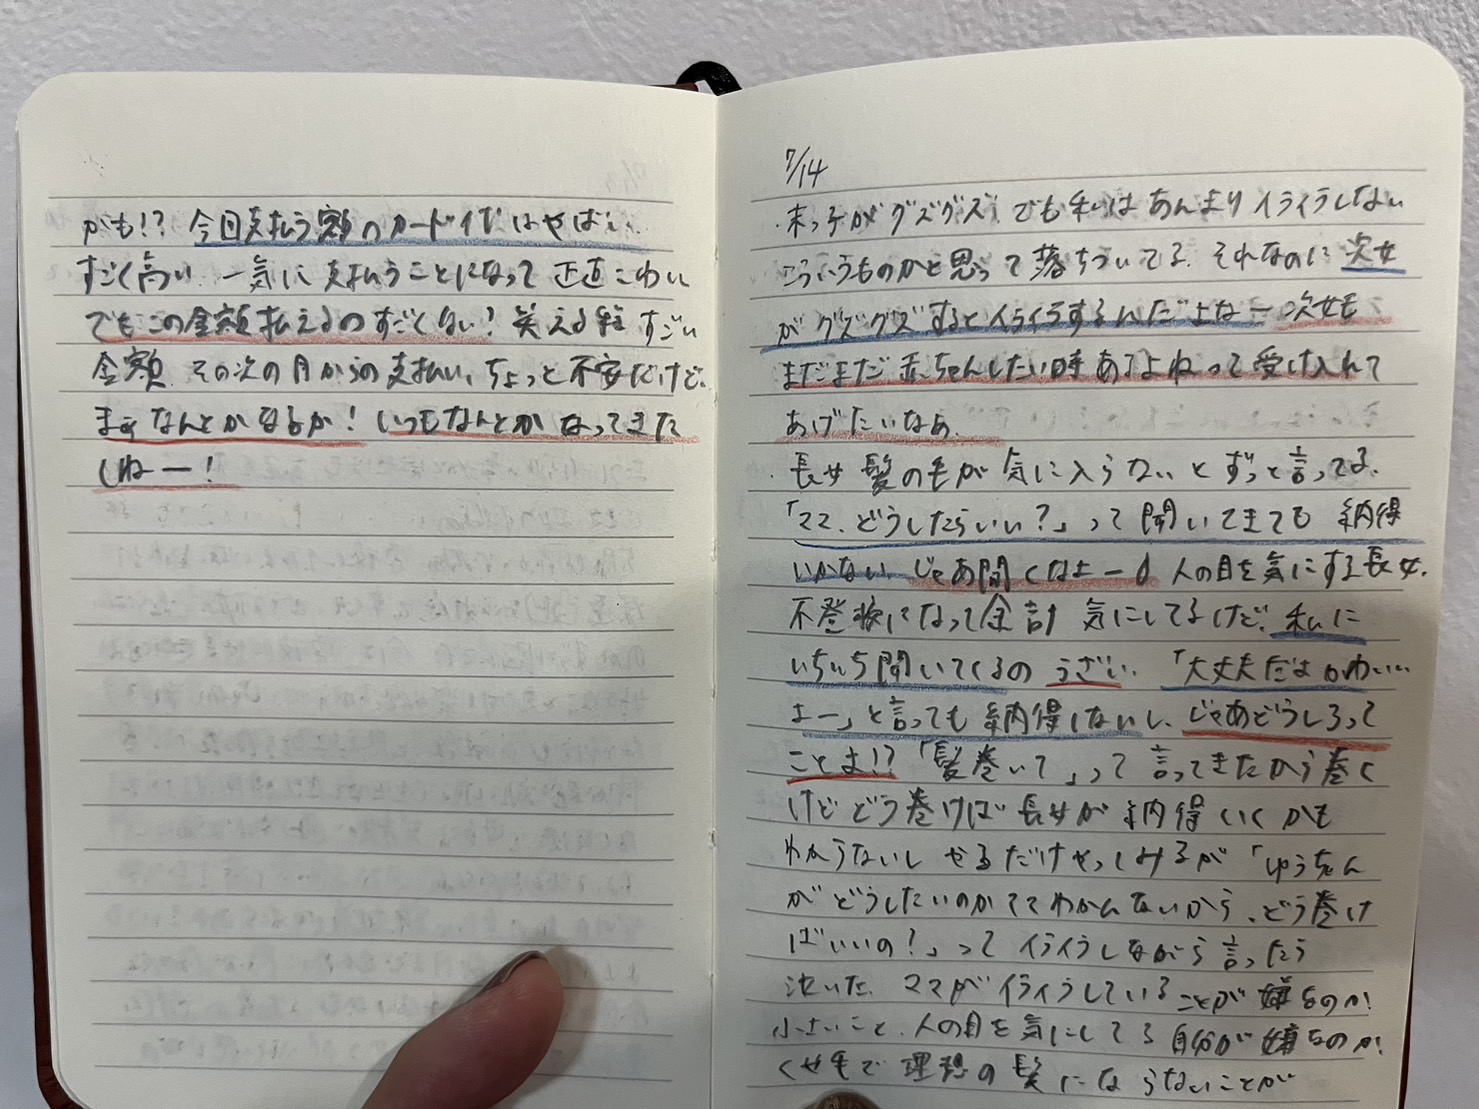 かも!? 今回支払う額のカード代はやばい
すごく高い 一気に支払うことになって正直こわい
でもこの金額払えるのすごくない! 笑える程すごい
金額 その次の月からの支払い、ちょっと不安だけど、
まぁなんとかなるか! いつもなんとかなってきた
しねー!
7/14
・末っ子がグズグズ でも私はあんまりイライラしない
こういうものかと思って落ちついてる それなのに次女
がグズグズするとイライラするんだよなー 次女も
まだまだ赤ちゃんしたい時あるよねって受け入れて
あげたいなぁ
・長女 髪の毛が気に入らないとずっと言ってる
「ママ、どうしたらいい?」って聞いてきても納得
いかない じゃあ聞くなよー 人の目を気にする長女
不登校になって余計気にしてるけど、私に
いちいち聞いてくるのうざい 「大丈夫だよかわいい
よー」と言っても納得しないし、じゃあどうしろって
ことよ!? 「髪巻いて」って言ってきたから巻く
けどどう巻けば長女が納得いくかも
わからないし やるだけやってみるが「ゆうちゃん
がどうしたいのかママわかんないから、どう巻け
ばいいの?」ってイライラしながら言ったら
泣いた ママがイライラしていることが嫌なのか
小さいこと、人の目を気にしてる自分が嫌なのか
くせ毛で理想の髪にならないことが